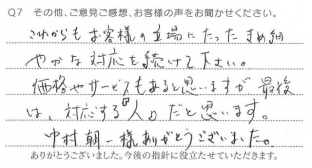 Q7 その他、ご意見ご感想、お客様の声をお聞かせください。
これからもお客様の立場にたったきめ細
やかな対応を続けて下さい。
価格やサービスもあると思いますが最後
は、対応する『人』だと思います。
中村朝一様ありがとうございました。
ありがとうございました。今後の指針に役立たせていただきます。